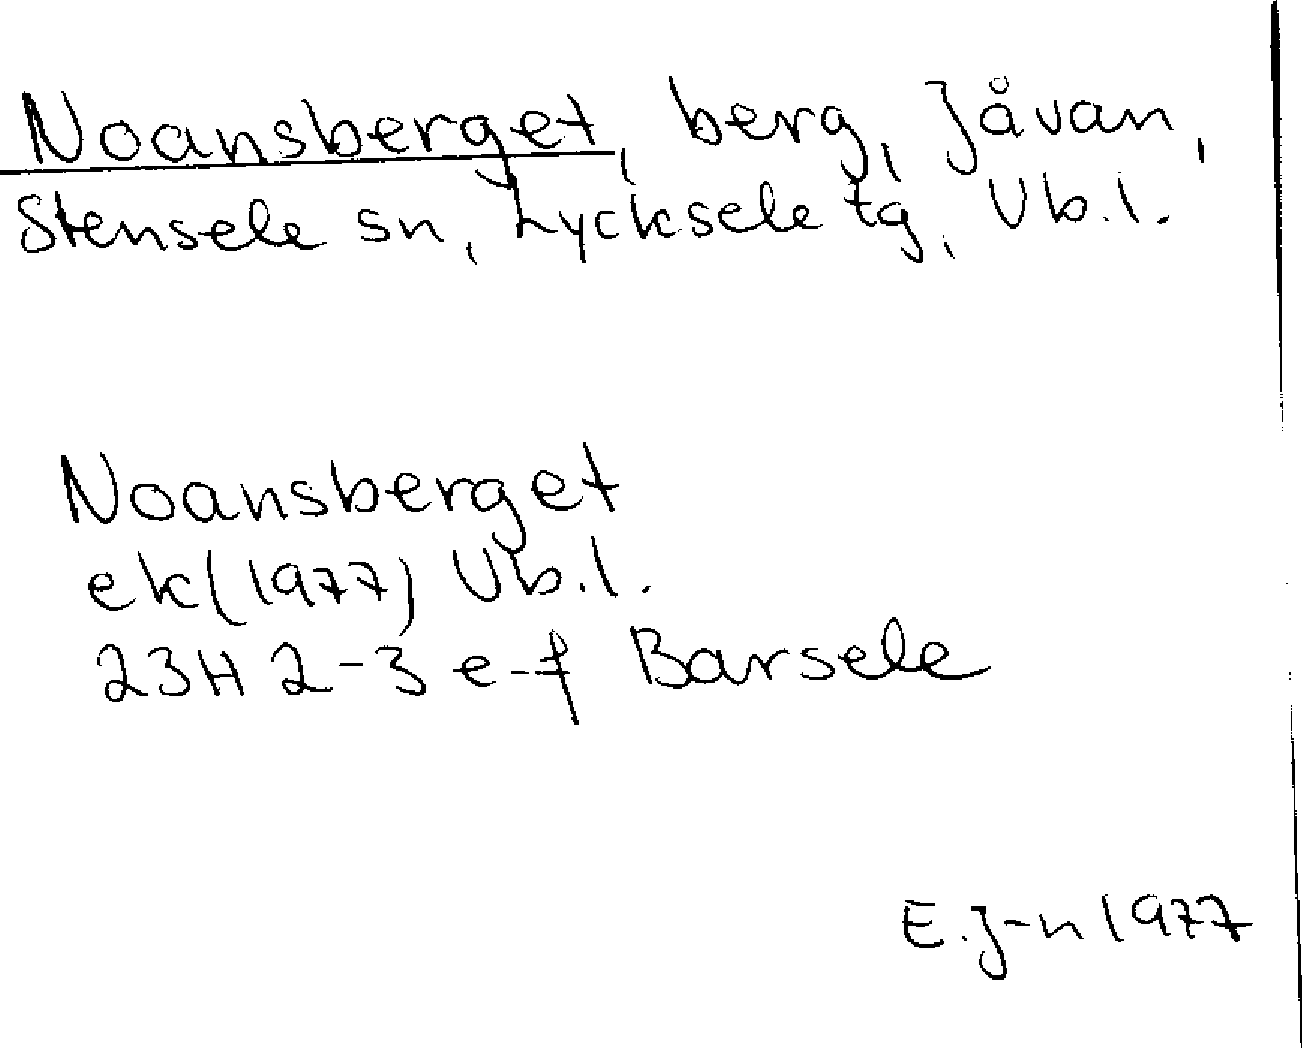 Noansberget, berg, Jåvan,
Stensele sn, Lycksele tg, Vb.l.
Noansberget
ek(1977) Vb.l.
23H 2-3 e-f Barsele
E.J-n 1977